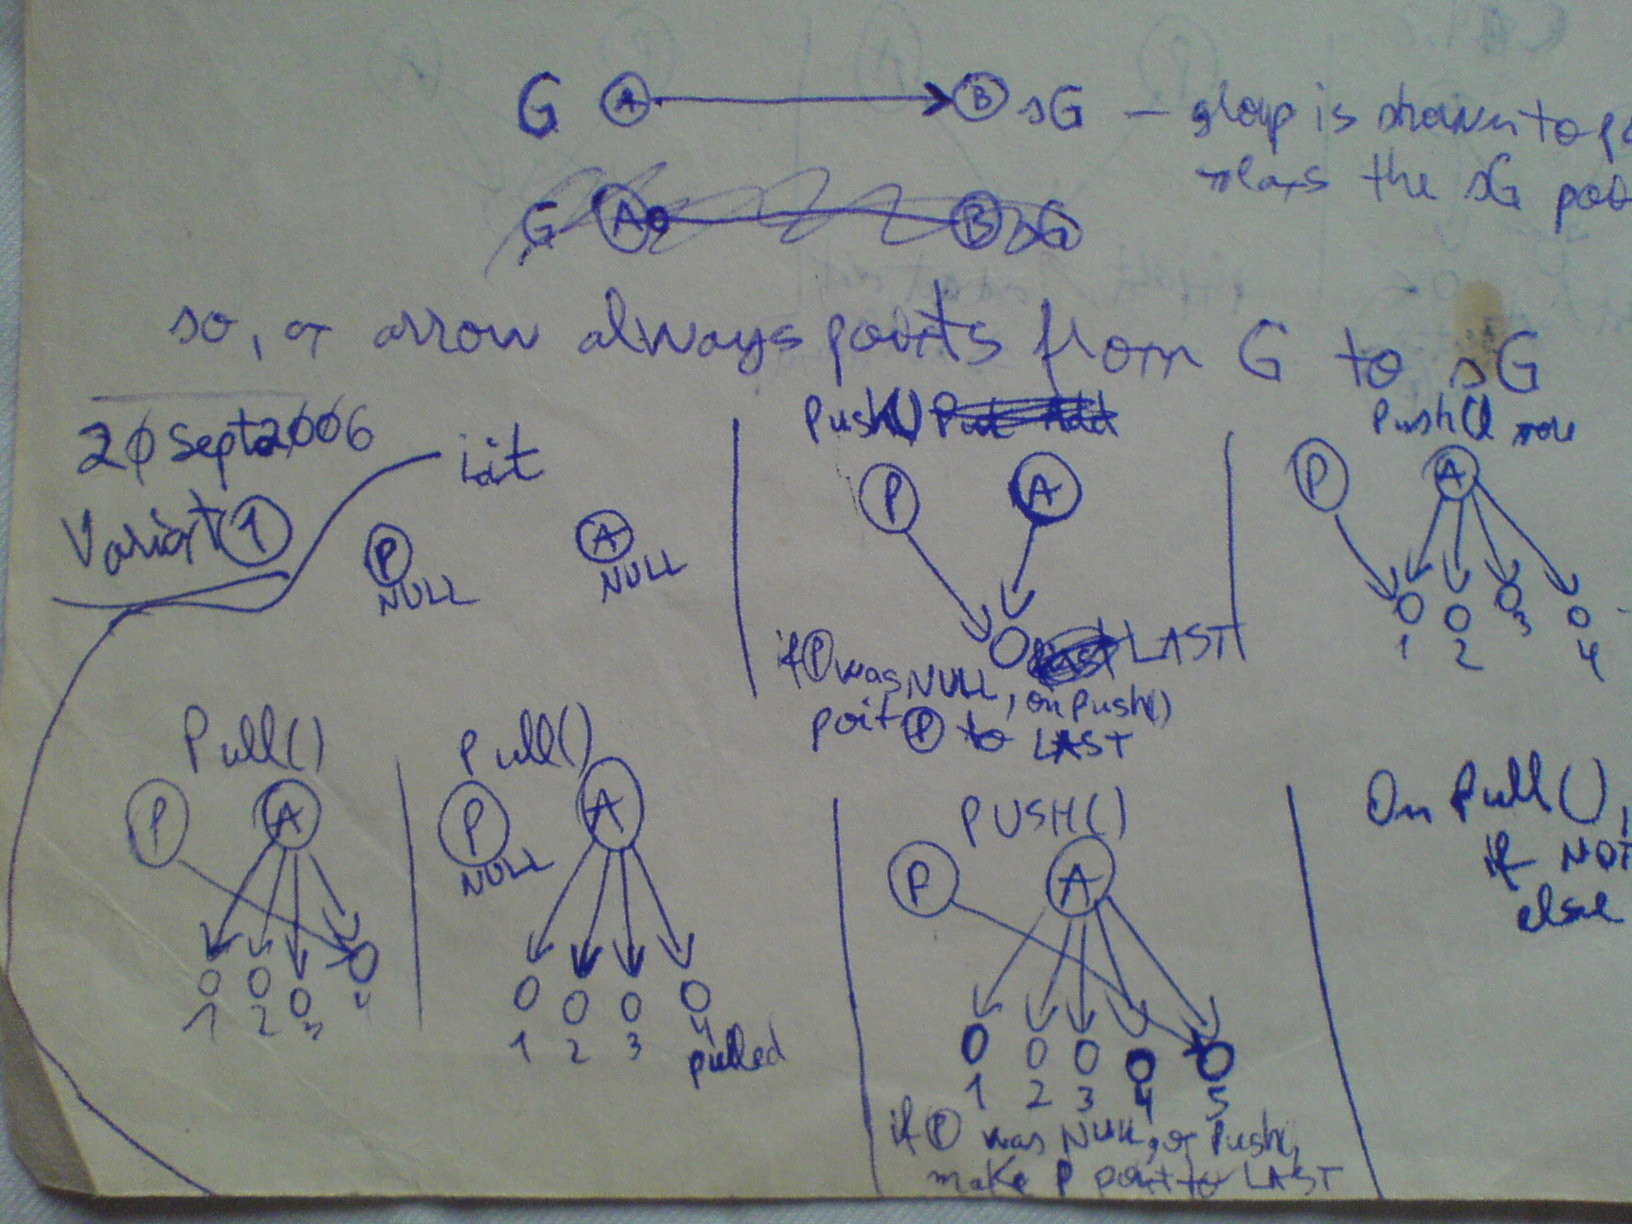 G A B sG — group is shown to
the sG
G A B sG
so, a arrow always points from G to sG
20 Sept 2006
Variant 1
init
P NULL
A NULL
Push()
P A
LAST
if P was NULL, on push()
poit P to LAST
Push()
P A
1 2 3 4
Pull()
P A
1 2 3 4
Pull()
P NULL
A
1 2 3 4
pulled
PUSH()
P A
1 2 3 4 5
if P was NULL, on Push(),
make P poit to LAST
On Pull(),
if NOT
else